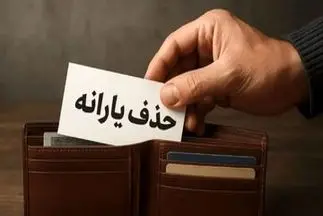 حذف یارانه